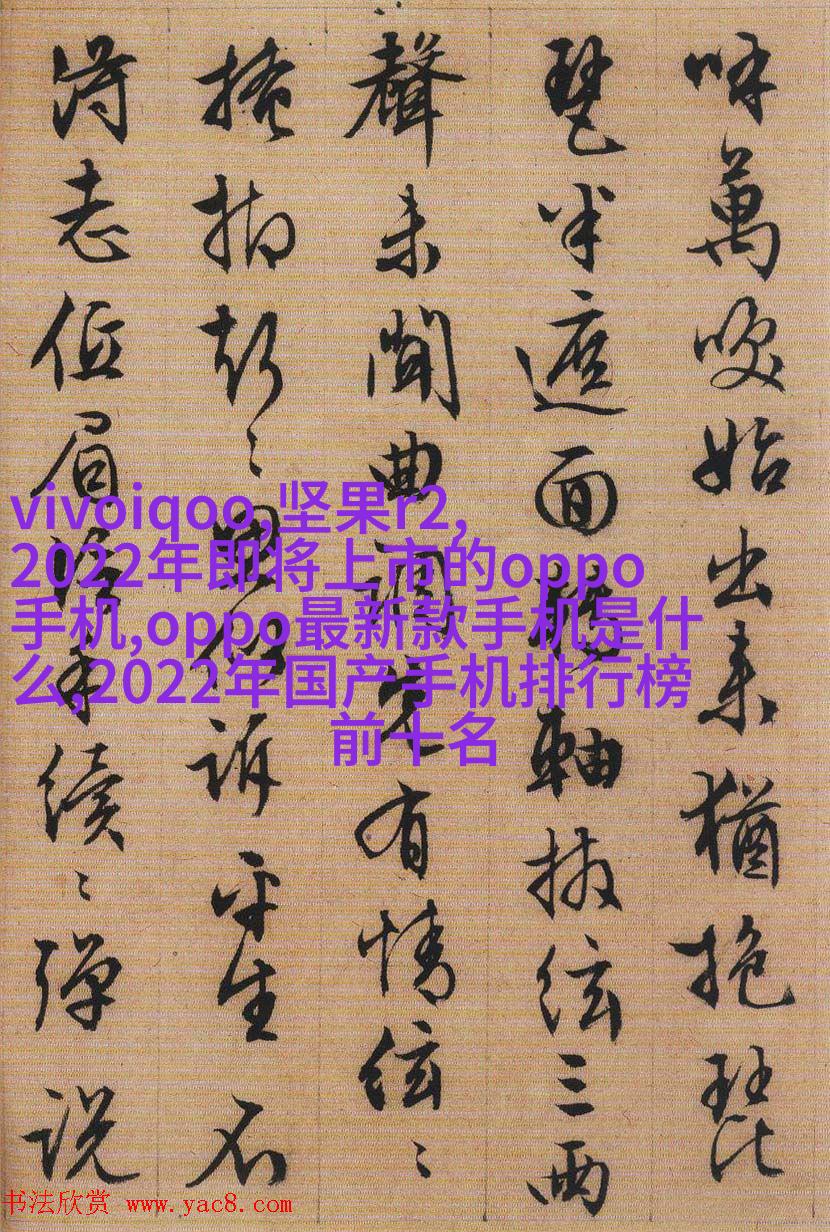 呼萬喚始出来猶抱琵
琶半遮面轉軸撥絃三兩
聲未聞曲調先有情絃〻
掩抑聲〻思似訴平生不
得志低眉信手續〻彈説
vivoiqoo,坚果r2,
2022年即将上市的oppo
手机,oppo最新款手机是什
么,2022年国产手机排行榜
前十名
书法欣赏 www.yac8.com